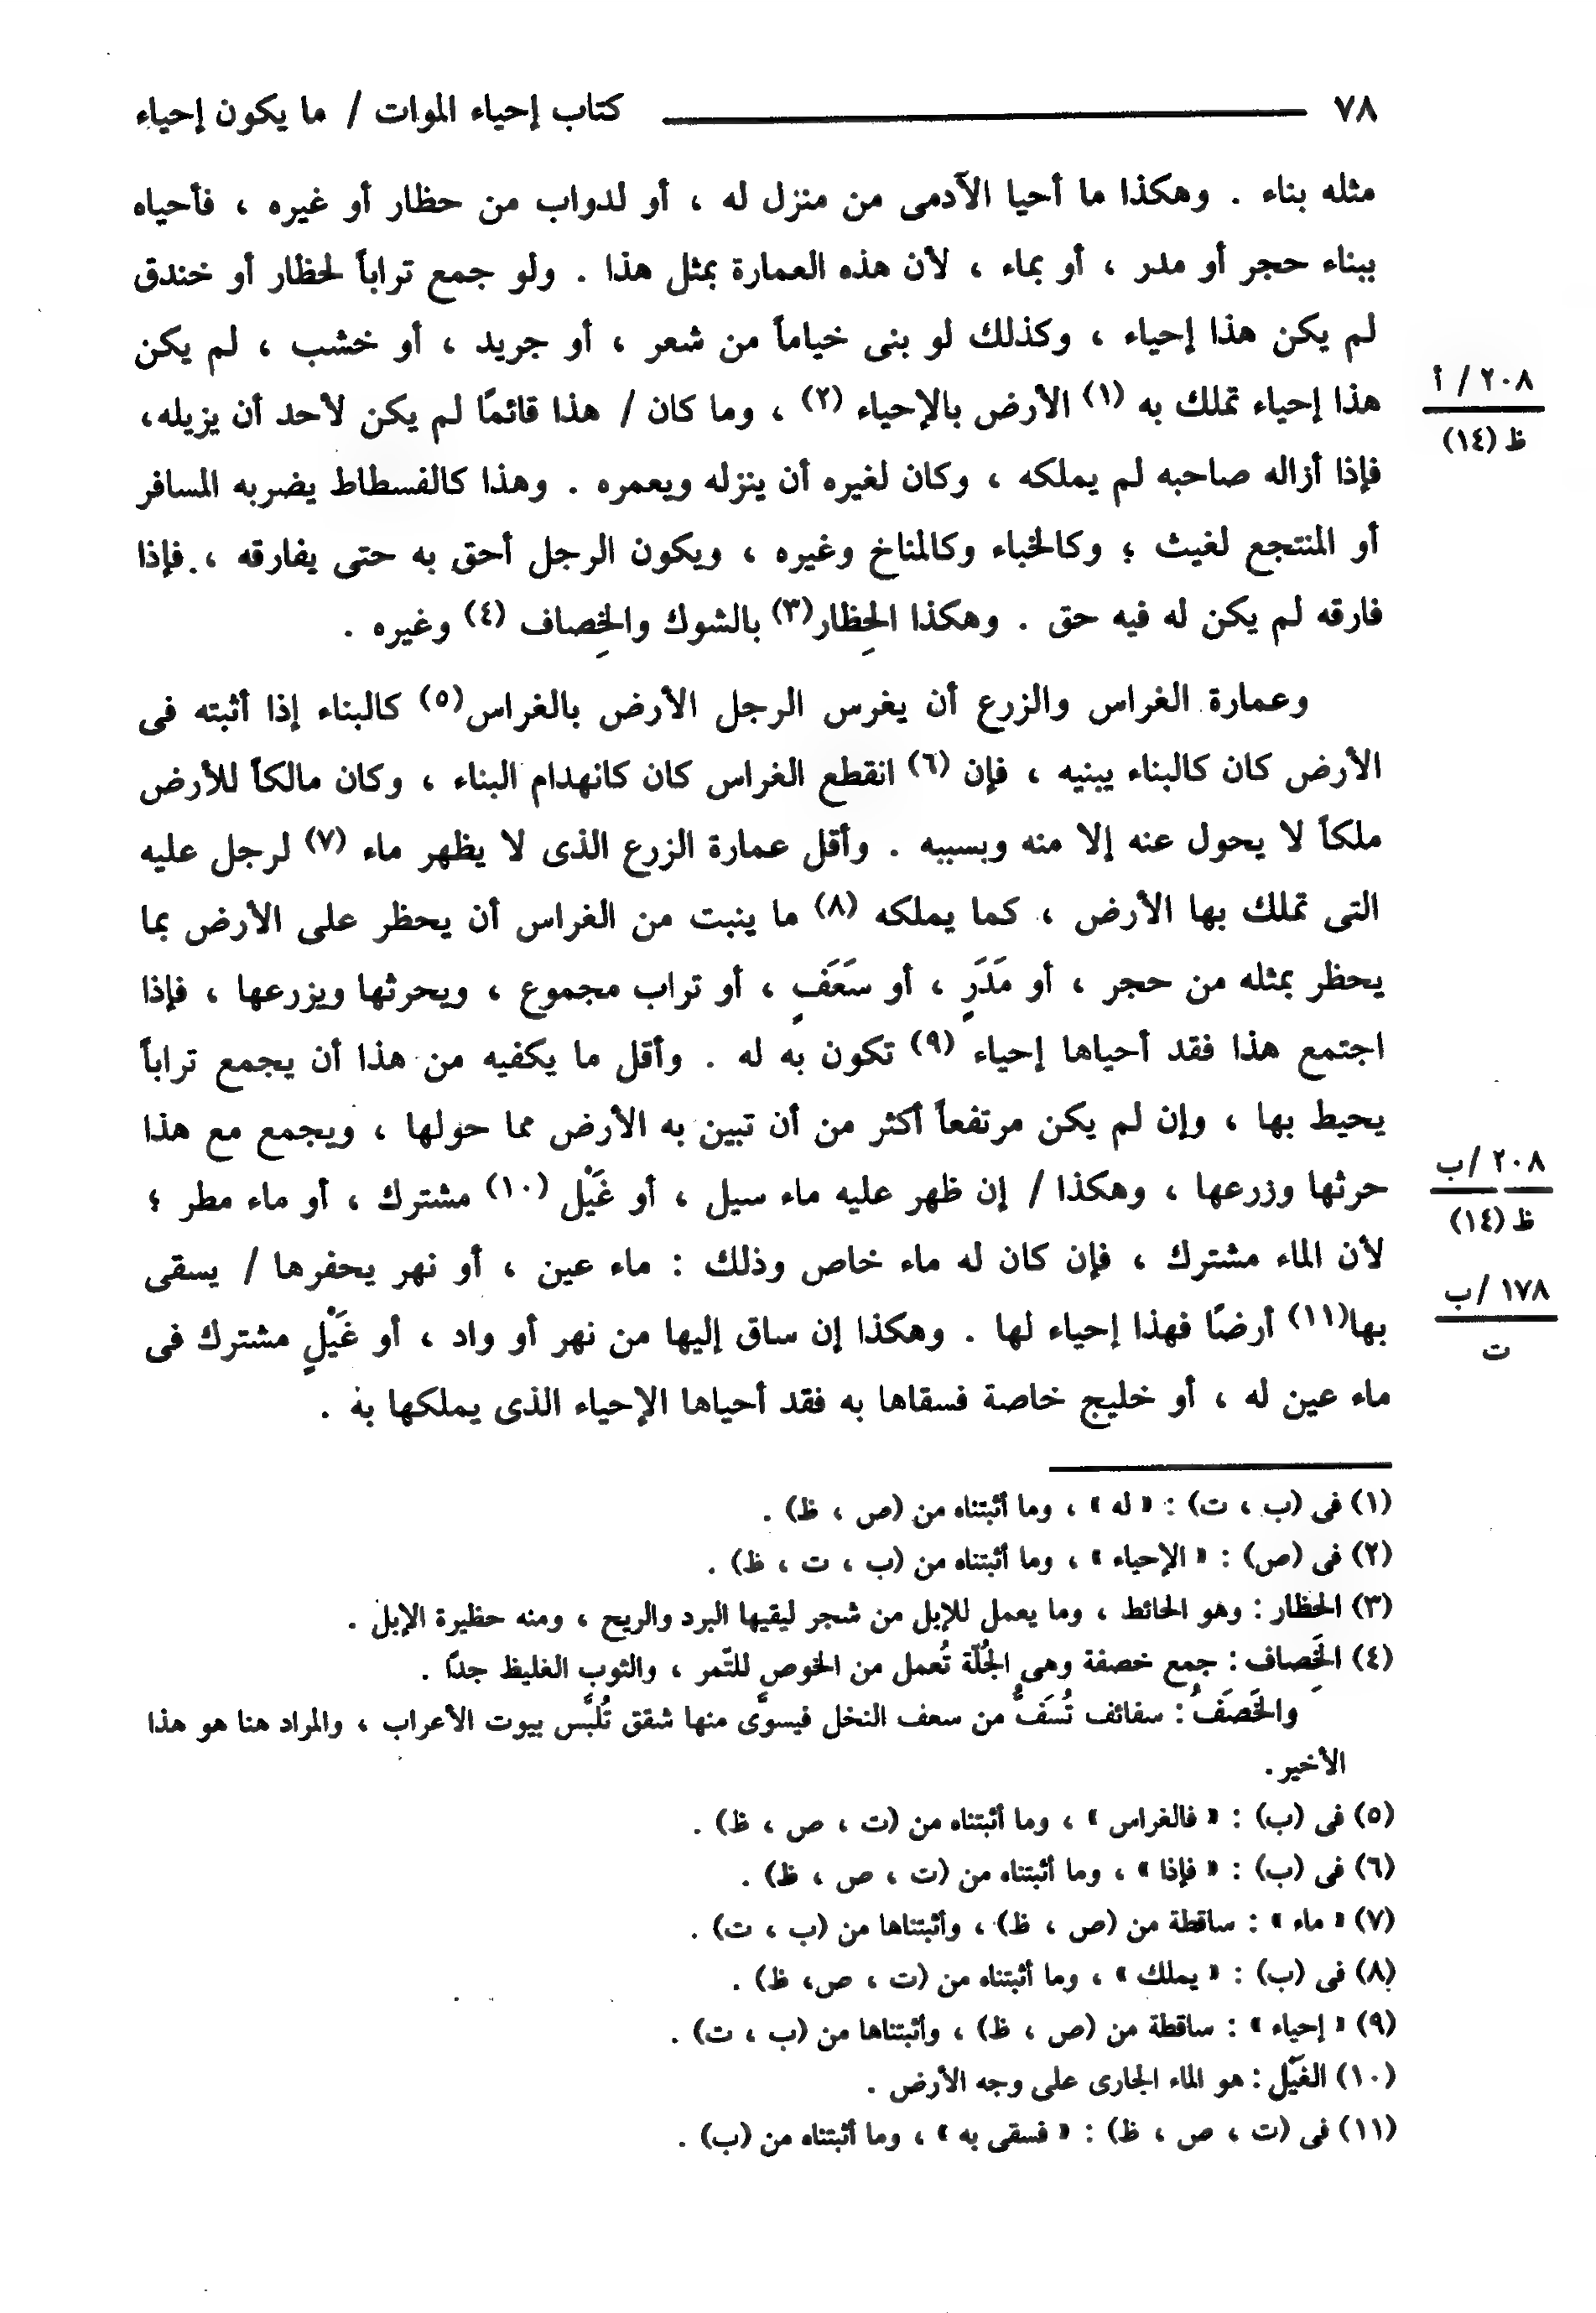 ٧٨ كتاب إحياء الموات / ما يكون إحياء
مثله بناء . وهكذا ما أحيا الآدمى من منزل له ، أو لدواب من حظار أو غيره ، فأحياه
ببناء حجر أو مدر ، أو بماء ، لأن هذه العمارة بمثل هذا . ولو جمع تراباً لحظار أو خندق
لم يكن هذا إحياء ، وكذلك لو بنى خياماً من شعر ، أو جريد ، أو خشب ، لم يكن
هذا إحياء تملك به (١) الأرض بالإحياء (٢) ، وما كان / هذا قائمًا لم يكن لأحد أن يزيله،
٢٠٨ / أ
ظ (١٤)
فإذا أزاله صاحبه لم يملكه ، وكان لغيره أن ينزله ويعمره . وهذا كالفسطاط يضربه المسافر
أو المنتجع لغيث ؛ وكالخباء وكالمناخ وغيره ، ويكون الرجل أحق به حتى يفارقه ، فإذا
فارقه لم يكن له فيه حق . وهكذا الحِظار(٣) بالشوك والخِصاف (٤) وغيره .
وعمارة الغراس والزرع أن يغرس الرجل الأرض بالغراس(٥) كالبناء إذا أثبته فى
الأرض كان كالبناء يبنيه ، فإن (٦) انقطع الغراس كان كانهدام البناء ، وكان مالكاً للأرض
ملكاً لا يحول عنه إلا منه وبسببه . وأقل عمارة الزرع الذى لا يظهر ماء (٧) لرجل عليه
التى تملك بها الأرض ، كما يملكه (٨) ما ينبت من الغراس أن يحظر على الأرض بما
يحظر بمثله من حجر ، أو مَدَرٍ ، أو سَعَفٍ ، أو تراب مجموع ، ويحرثها ويزرعها ، فإذا
اجتمع هذا فقد أحياها إحياء (٩) تكون به له . وأقل ما يكفيه من هذا أن يجمع تراباً
يحيط بها ، وإن لم يكن مرتفعاً أكثر من أن تبين به الأرض مما حولها ، ويجمع مع هذا
حرثها وزرعها ، وهكذا / إن ظهر عليه ماء سيل ، أو غَيْل (١٠) مشترك ، أو ماء مطر ؛
٢٠٨ /ب
ظ (١٤)
لأن الماء مشترك ، فإن كان له ماء خاص وذلك : ماء عين ، أو نهر يحفرها / يسقى
١٧٨ /ب
ت
بها(١١) أرضًا فهذا إحياء لها . وهكذا إن ساق إليها من نهر أو واد ، أو غَيْلٍ مشترك فى
ماء عين له ، أو خليج خاصة فسقاها به فقد أحياها الإحياء الذى يملكها به .
(١) فى (ب ، ت) : « له » ، وما أثبتناه من (ص ، ظ) .
(٢) فى (ص) : « الإحياء » ، وما أثبتناه من (ب ، ت ، ظ) .
(٣) الحظار : وهو الحائط ، وما يعمل للإبل من شجر ليقيها البرد والريح ، ومنه حظيرة الإبل .
(٤) الخَصِاف : جمع خصفة وهى الجُلّة تُعمل من الخوص للتّمر ، والثوب الغليظ جدًا .
والخَصَفُ : سفائف تُسَفُّ من سعف النخل فيسوَّى منها شقق تُلبَّس بيوت الأعراب ، والمراد هنا هو هذا
الأخير .
(٥) فى (ب) : « فالغراس » ، وما أثبتناه من (ت ، ص ، ظ) .
(٦) فى (ب) : « فإذا » ، وما أثبتناه من (ت ، ص ، ظ) .
(٧) « ماء » : ساقطة من (ص ، ظ) ، وأثبتناها من (ب ، ت) .
(٨) فى (ب) : « يملك » ، وما أثبتناه من (ت ، ص، ظ) .
(٩) « إحياء » : ساقطة من (ص ، ظ) ، وأثبتناها من (ب ، ت) .
(١٠) الغَيْل : هو الماء الجارى على وجه الأرض .
(١١) فى (ت ، ص ، ظ) : « فسقى به » ، وما أثبتناه من (ب) .